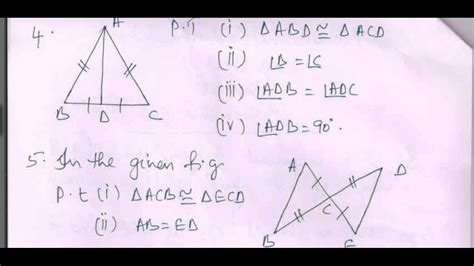 4.
A
B D C
P.T (i) ΔABD ≅ ΔACD
(ii) ∠B = ∠C
(iii) ∠ADB = ∠ADC
(iv) ∠ADB = 90°.
5. In the given fig
P.t (i) ΔACB ≅ ΔECD
(ii) AB = ED
A D
C
B E